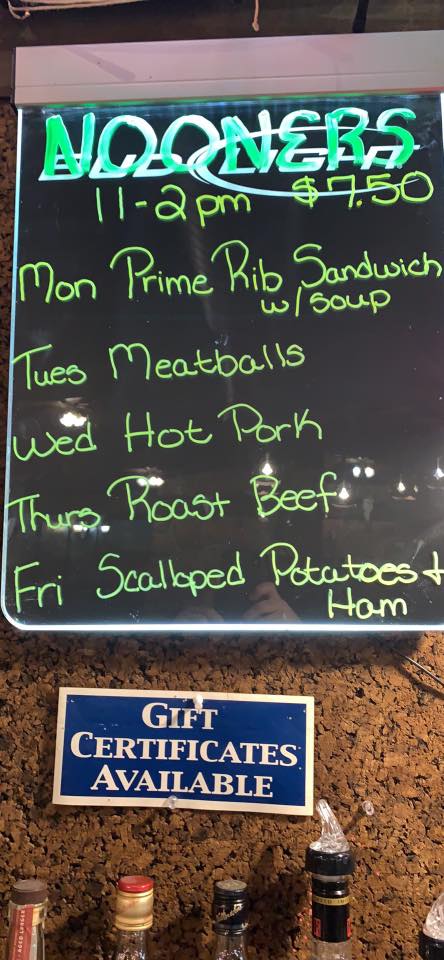 NOONERS
11-2pm $7.50
Mon Prime Rib Sandwich
w/soup
Tues Meatballs
Wed Hot Pork
Thurs Roast Beef
Fri Scalloped Potatoes +
Ham
GIFT
CERTIFICATES
AVAILABLE